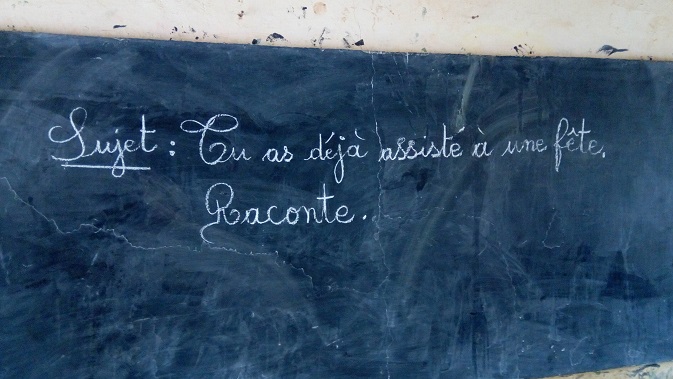 Sujet : Tu as déjà assisté à une fête.
Raconte.